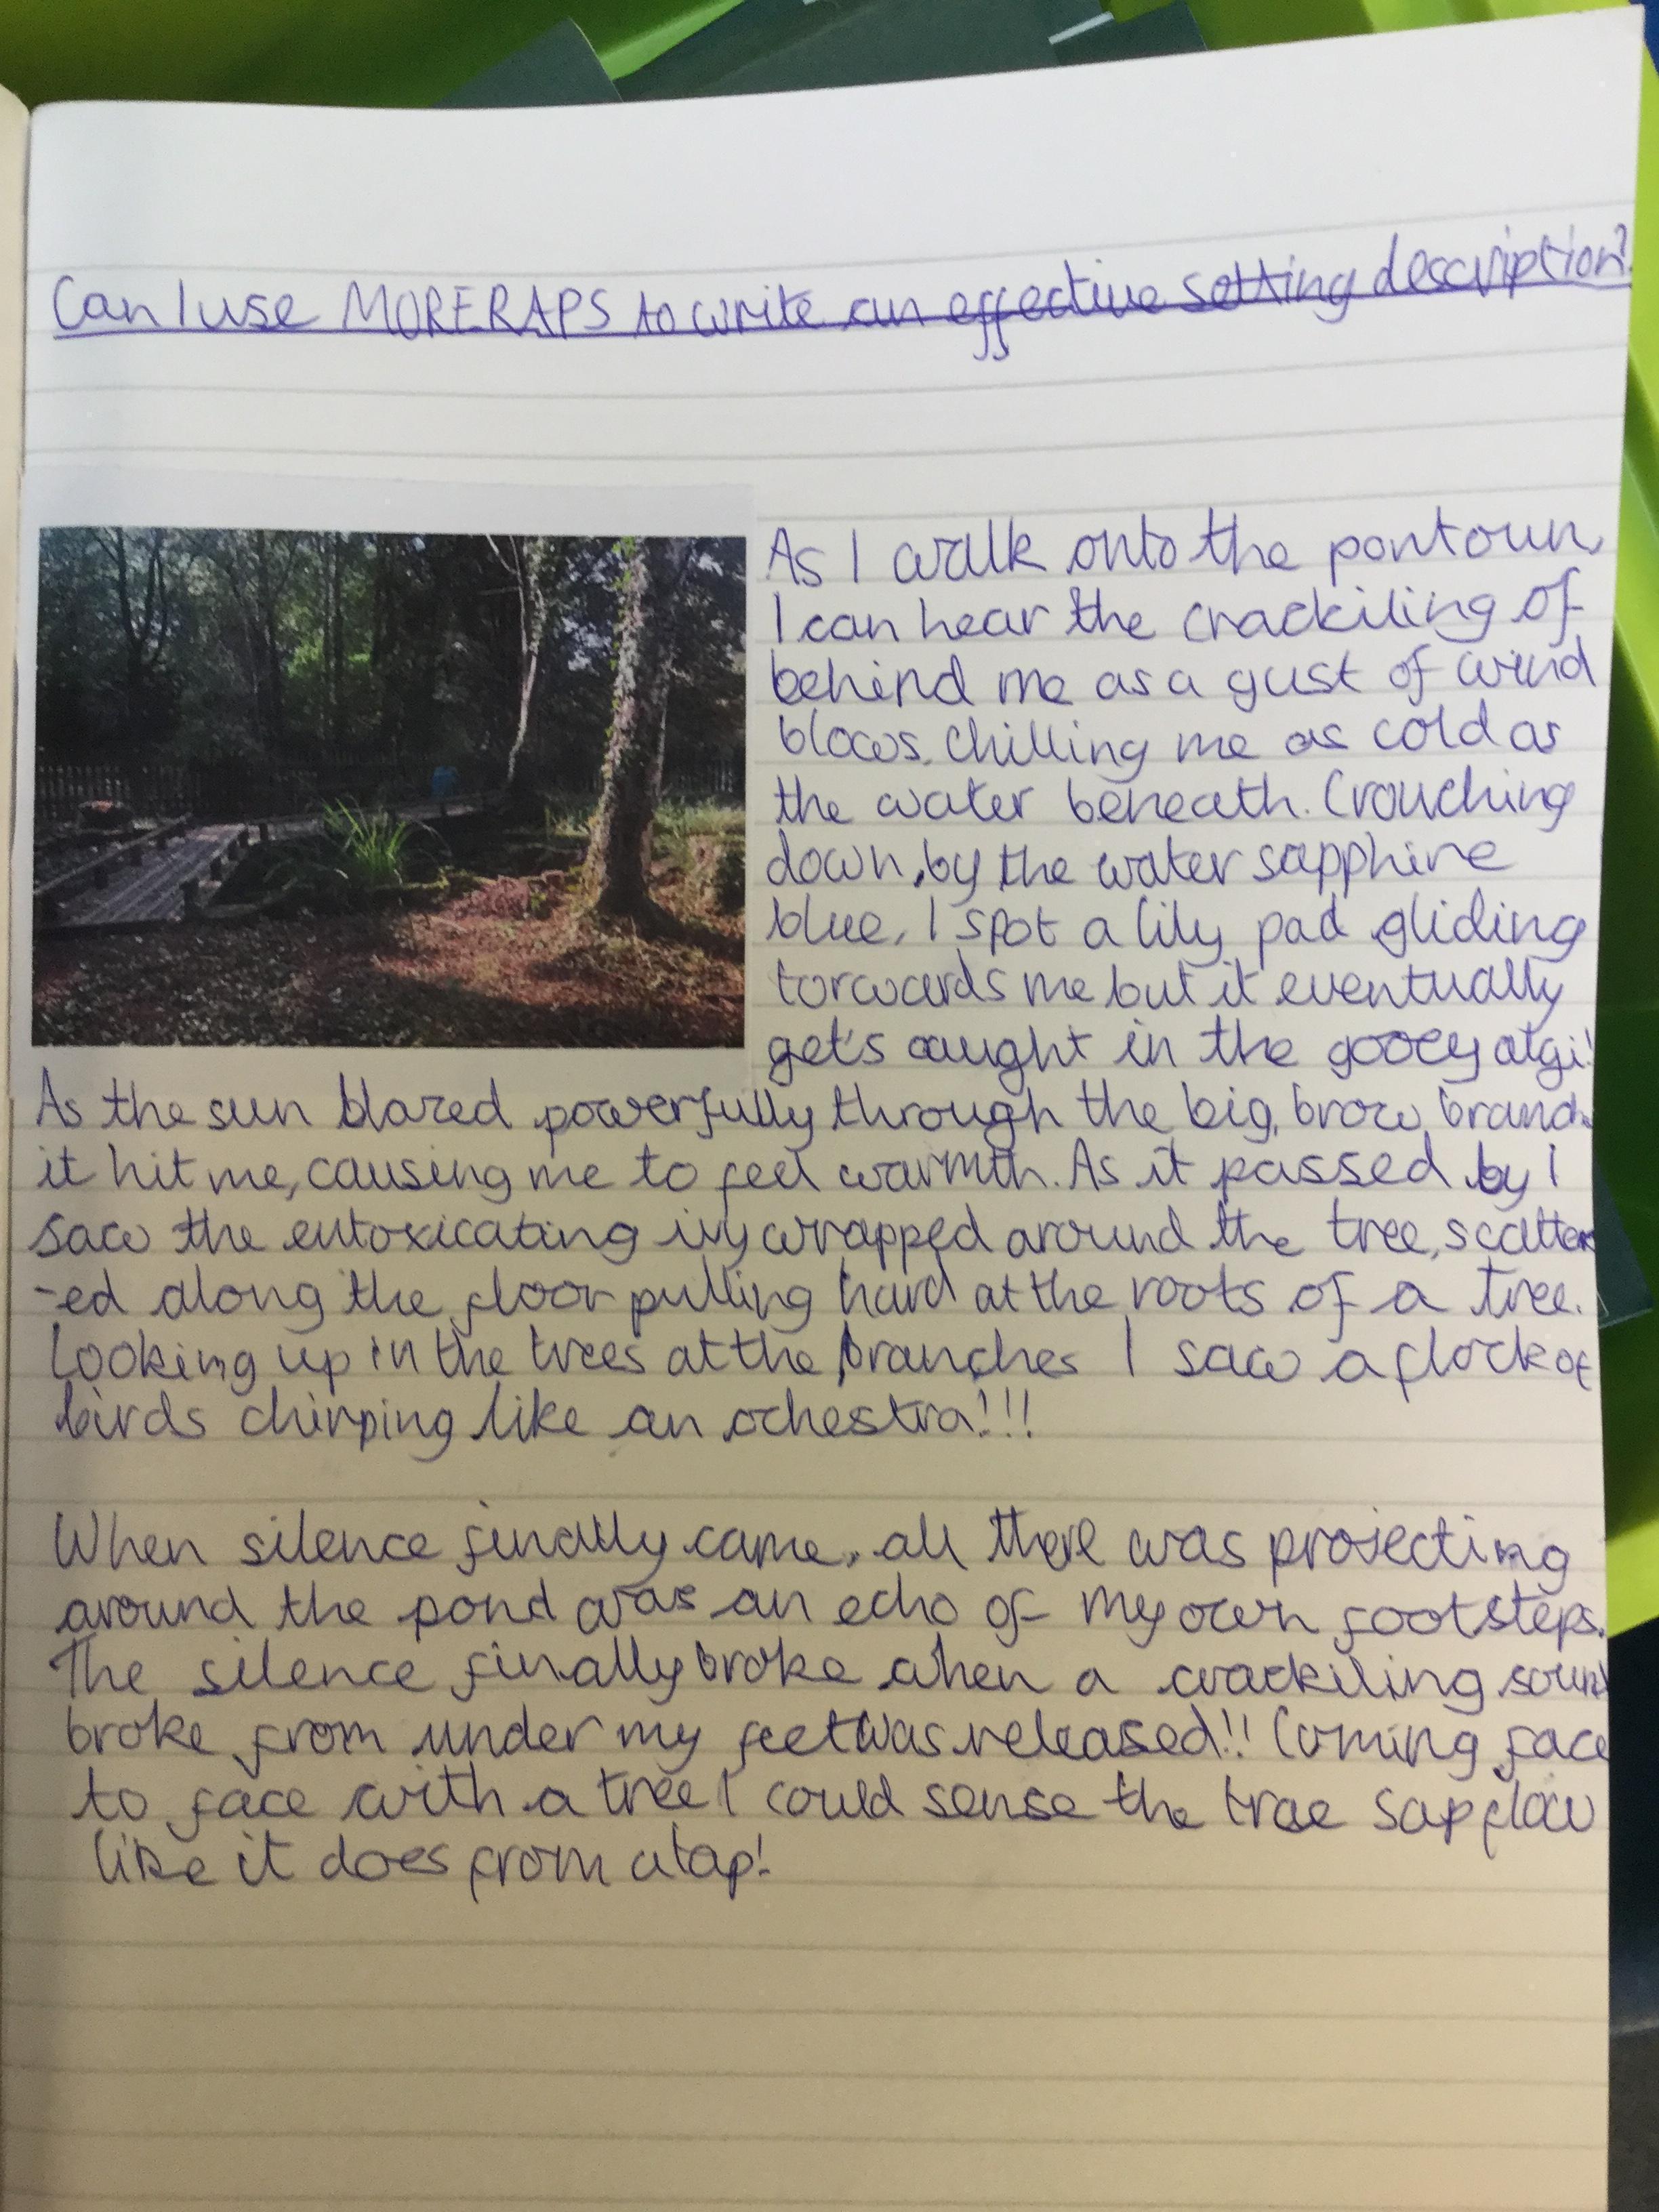 Can I use MORERAPS to write an effective setting description?
As I walk onto the pontoun,
I can hear the crackiling of
behind me as a gust of wind
blows, chilling me as cold as
the water beneath. Crouching
down, by the water sapphire
blue, I spot a lily pad gliding
torwards me but it eventually
gets caught in the gooey algi!
As the sun blazed powerfully through the big, brow branch
it hit me, causing me to feel warmth. As it passed by I
saw the entoxicating ivy wrapped around the tree, scatter
-ed along the floor pulling hard at the roots of a tree.
Looking up in the trees at the branches I saw a flock of
birds chirping like an ochestra!!!
When silence finally came, all there was projecting
around the pond was an echo of my own footsteps.
The silence finally broke when a crackiling sound
broke from under my feet was released!! Coming face
to face with a tree I could sense the trae sap flow
like it does from a tap!